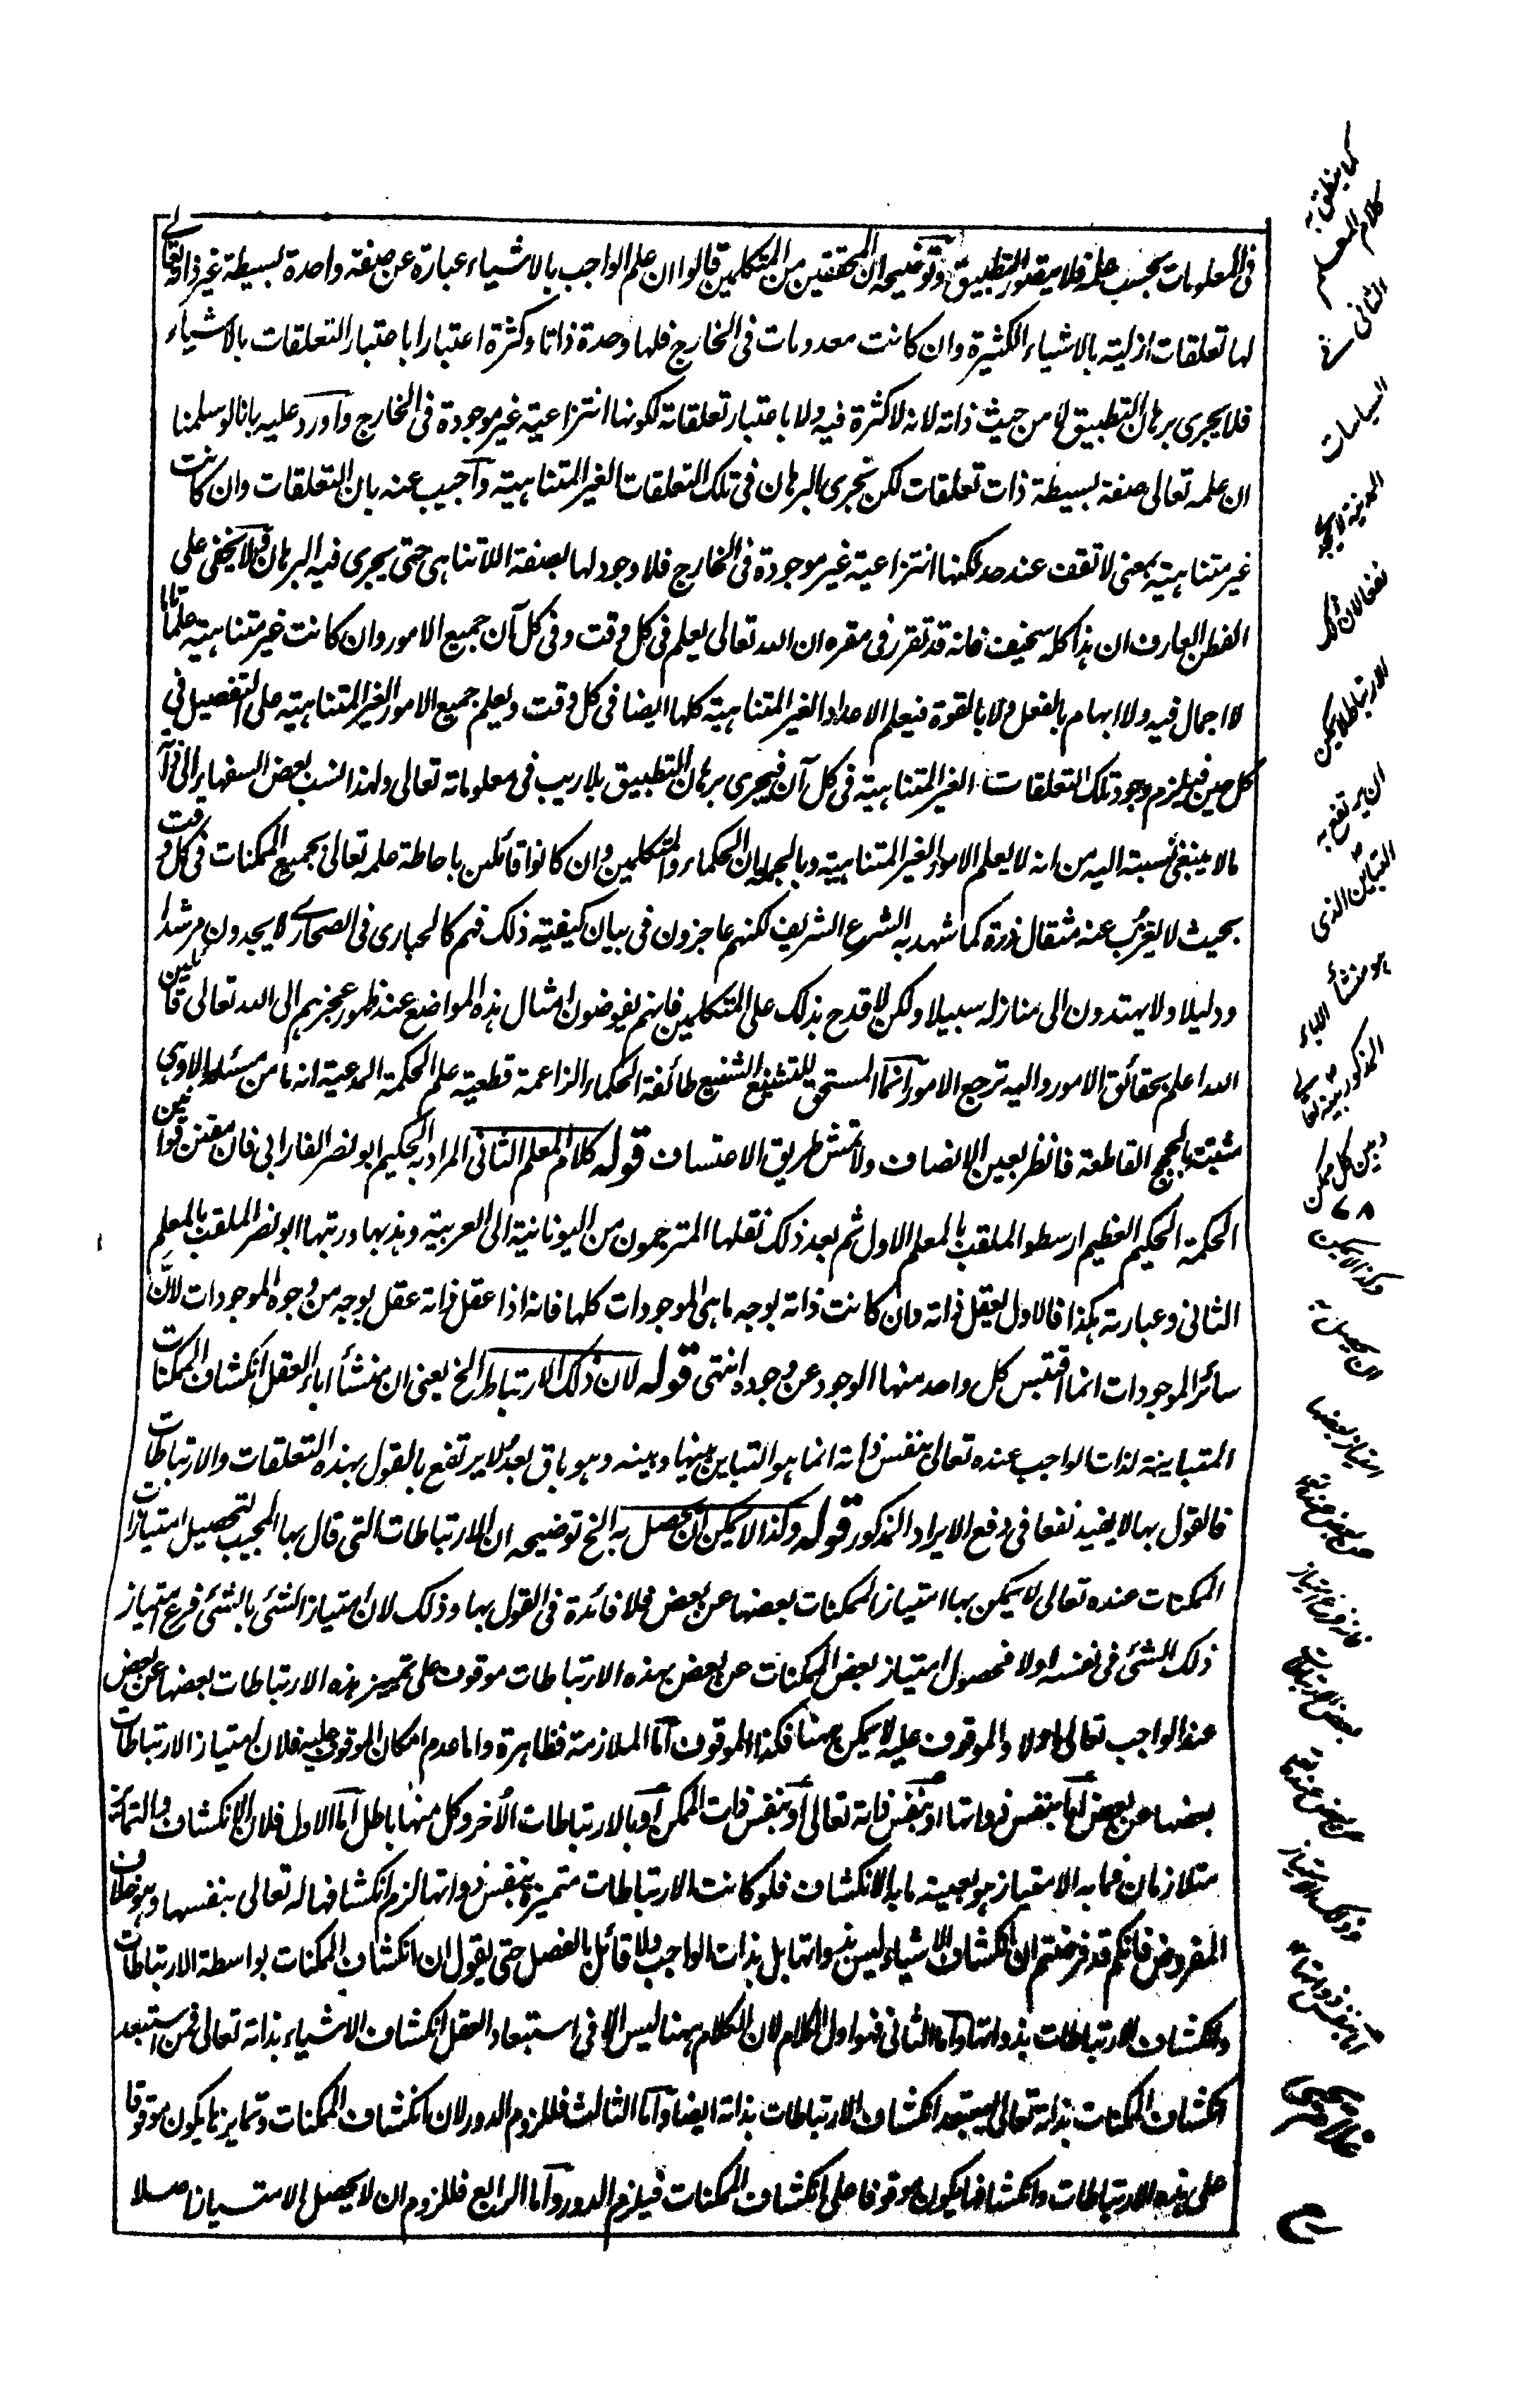 في المعلومات بحسب علمه فلا يتصور التطبيق وتوضيحه ان المحققين من المتكلمين قالوا ان علم الواجب بالاشياء عبارة عن صفة واحدة بسيطة غير ذاته تعالى
لها تعلقات ازلية بالاشياء الكثيرة وان كانت معدومات في الخارج فلها وحدة ذاتا وكثرة اعتبارا باعتبار التعلقات بالاشياء
فلا يجرى برهان التطبيق لا من حيث ذاته لانه لا كثرة فيه ولا باعتبار تعلقاته لكونها انتزاعية غير موجودة في الخارج وأورد عليه بانا لو سلمنا
ان علمه تعالى صفة بسيطة ذات تعلقات لكن نجرى البرهان في تلك التعلقات الغير المتناهية وأجيب عنه بان التعلقات وان كانت
غير متناهية بمعنى لا تقف عند حد لكنها انتزاعية غير موجودة في الخارج فلا وجود لها بصفة اللاتناهى حتى يجرى فيه البرهان ولا يخفى على
الفطن العارف ان هذا كله سخيف فانه قد تقرر في مقره ان الله تعالى يعلم في كل وقت وفي كل آن جميع الامور وان كانت غير متناهية علما تاما
لا اجمال فيه ولا ابهام بالفعل ولا بالقوة فيعلم الاعداد الغير المتناهية كلها ايضا في كل وقت ويعلم جميع الامور الغير المتناهية على التفصيل في
كل حين فيلزم وجود تلك التعلقات الغير المتناهية في كل آن فيجرى برهان التطبيق بلا ريب في معلوماته تعالى ولهذا نسب بعض السفهاء الى
ما لا ينبغى نسبته اليه من انه لا يعلم الامور الغير المتناهية وبالجملة ان الحكماء والمتكلمين وان كانوا قائلين باحاطة علمه تعالى بجميع الممكنات في كل وقت
بحيث لا يعزب عنه مثقال ذرة كما شهد به الشرع الشريف لكنهم عاجزون في بيان كيفية ذلك فهم كالحبارى في الصحارى لا يجدون مرشدا
ودليلا ولا يهتدون الى منازله سبيلا ولكن لا قدح بذلك على المتكلمين فانهم يفوضون امثال هذه المواضع عند ظهور عجزهم الى الله تعالى قائلين
الله اعلم بحقائق الامور واليه ترجع الامور انما المستحق للتشنيع الشنيع طائفة الحكماء الزاعمة قطعية علم الحكمة المدعية انه ما من مسئلة الا وهى
مثبتة بالحجج القاطعة فانظر بعين الانصاف ولا تمش طريق الاعتساف قوله كلام المعلم الثانى المراد به الحكيم ابو نصر الفارابى فان مقنن قوانين
الحكمة الحكيم العظيم ارسطو الملقب بالمعلم الاول ثم بعد ذلك نقلها المترجمون من اليونانية الى العربية وهذبها ورتبها ابو نصر الملقب بالمعلم
الثانى وعبارته هكذا فالاول يعقل ذاته وان كانت ذاته بوجه ما هى الموجودات كلها فانه اذا عقل ذاته عقل بوجه من وجوه الموجودات لان
سائر الموجودات انما اقتبس كل واحد منها الوجود عن وجوده انتهى قوله لان ذلك الارتباط الخ يعنى ان منشأ اباء العقل انكشاف الممكنات
المتباينة لذات الواجب عنده تعالى بنفس ذاته انما هو التباين بينها وبينه وهو باق بعد لا يرتفع بالقول بهذه التعلقات والارتباطات
فالقول بها لا يفيد نفعا في دفع الايراد المذكور قوله وكذا لا يمكن ان يحصل به الخ توضيحه ان الارتباطات التى قال بها المجيب لتحصيل امتيازات
الممكنات عنده تعالى لا يمكن بها امتياز الممكنات بعضها عن بعض فلا فائدة في القول بها وذلك لان امتياز الشئ بالشئ فرع امتياز
ذلك الشئ في نفسه اولا فحصول امتياز بعض الممكنات عن بعض بهذه الارتباطات موقوف على تمييز هذه الارتباطات بعضها عن بعض
عند الواجب تعالى اولا والموقوف عليه لا يمكن ههنا فكذا الموقوف أما الملازمة فظاهرة واما عدم امكان الموقوف عليه فلان امتياز الارتباطات
بعضها عن بعض اما بنفس ذواتها او بنفس ذاته تعالى او بنفس ذات الممكن او بالارتباطات الأخر وكل منها باطل أما الاول فلان الانكشاف والتمايز
متلازمان فما به الامتياز هو بعينه ما به الانكشاف فلو كانت الارتباطات متميزة بنفس ذواتها لزم انكشافها له تعالى بنفسها وهو خلاف
المفروض فانكم قد فرضتم ان انكشاف الاشياء ليس بذواتها بل بذات الواجب ولا قائل بالفصل حتى يقول ان انكشاف الممكنات بواسطة الارتباطات
وانكشاف الارتباطات بذواتها وأما الثانى فهو اول الكلام لان الكلام ههنا ليس الا في استبعاد العقل انكشاف الاشياء بذاته تعالى فمن استبعد
انكشاف الممكنات بذاته تعالى يستبعد انكشاف الارتباطات بذاته ايضا وأما الثالث فللزوم الدور لان انكشاف الممكنات وتمايزها يكون موقوفا
على هذه الارتباطات وانكشافها يكون موقوفا على انكشاف الممكنات فيلزم الدور وأما الرابع فللزوم ان لا يحصل الامتياز اصلا
كما ينطق به
كلام المعلم
الثانى في
السياسات
نفعا لان ذلك
الارتباط لا يمكن
ان يرتفع به
التباين الذى
هو منشأ الاباء
المذكور بينه تعالى
وبين كل ممكن
وكذا لا يمكن
ان يحصل به
امتياز بعضها
عن بعض عنده تعالى
فانه فرع امتياز
بعض الارتباطات
عن بعض عنده تعالى
وذلك الامتياز
اما بنفس ذواتها